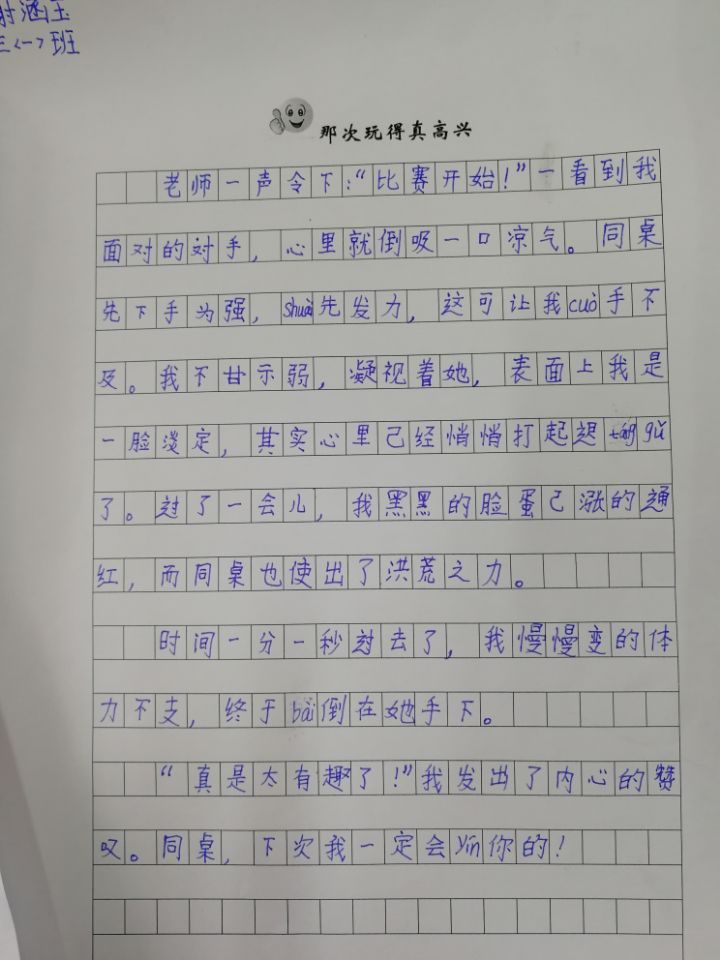 涵玉
三〈一〉班
那次玩得真高兴
老师一声令下：“比赛开始！”一看到我
面对的对手，心里就倒吸一口凉气。同桌
先下手为强，shuài先发力，这可让我cuò手不
及。我不甘示弱，凝视着她，表面上我是
一脸淡定，其实心里己经悄悄打起退táng gǔ
了。过了一会儿，我黑黑的脸蛋己涨的通
红，而同桌也使出了洪荒之力。
时间一分一秒过去了，我慢慢变的体
力不支，终于bài倒在她手下。
“真是太有趣了！”我发出了内心的赞
叹。同桌，下次我一定会yín你的！